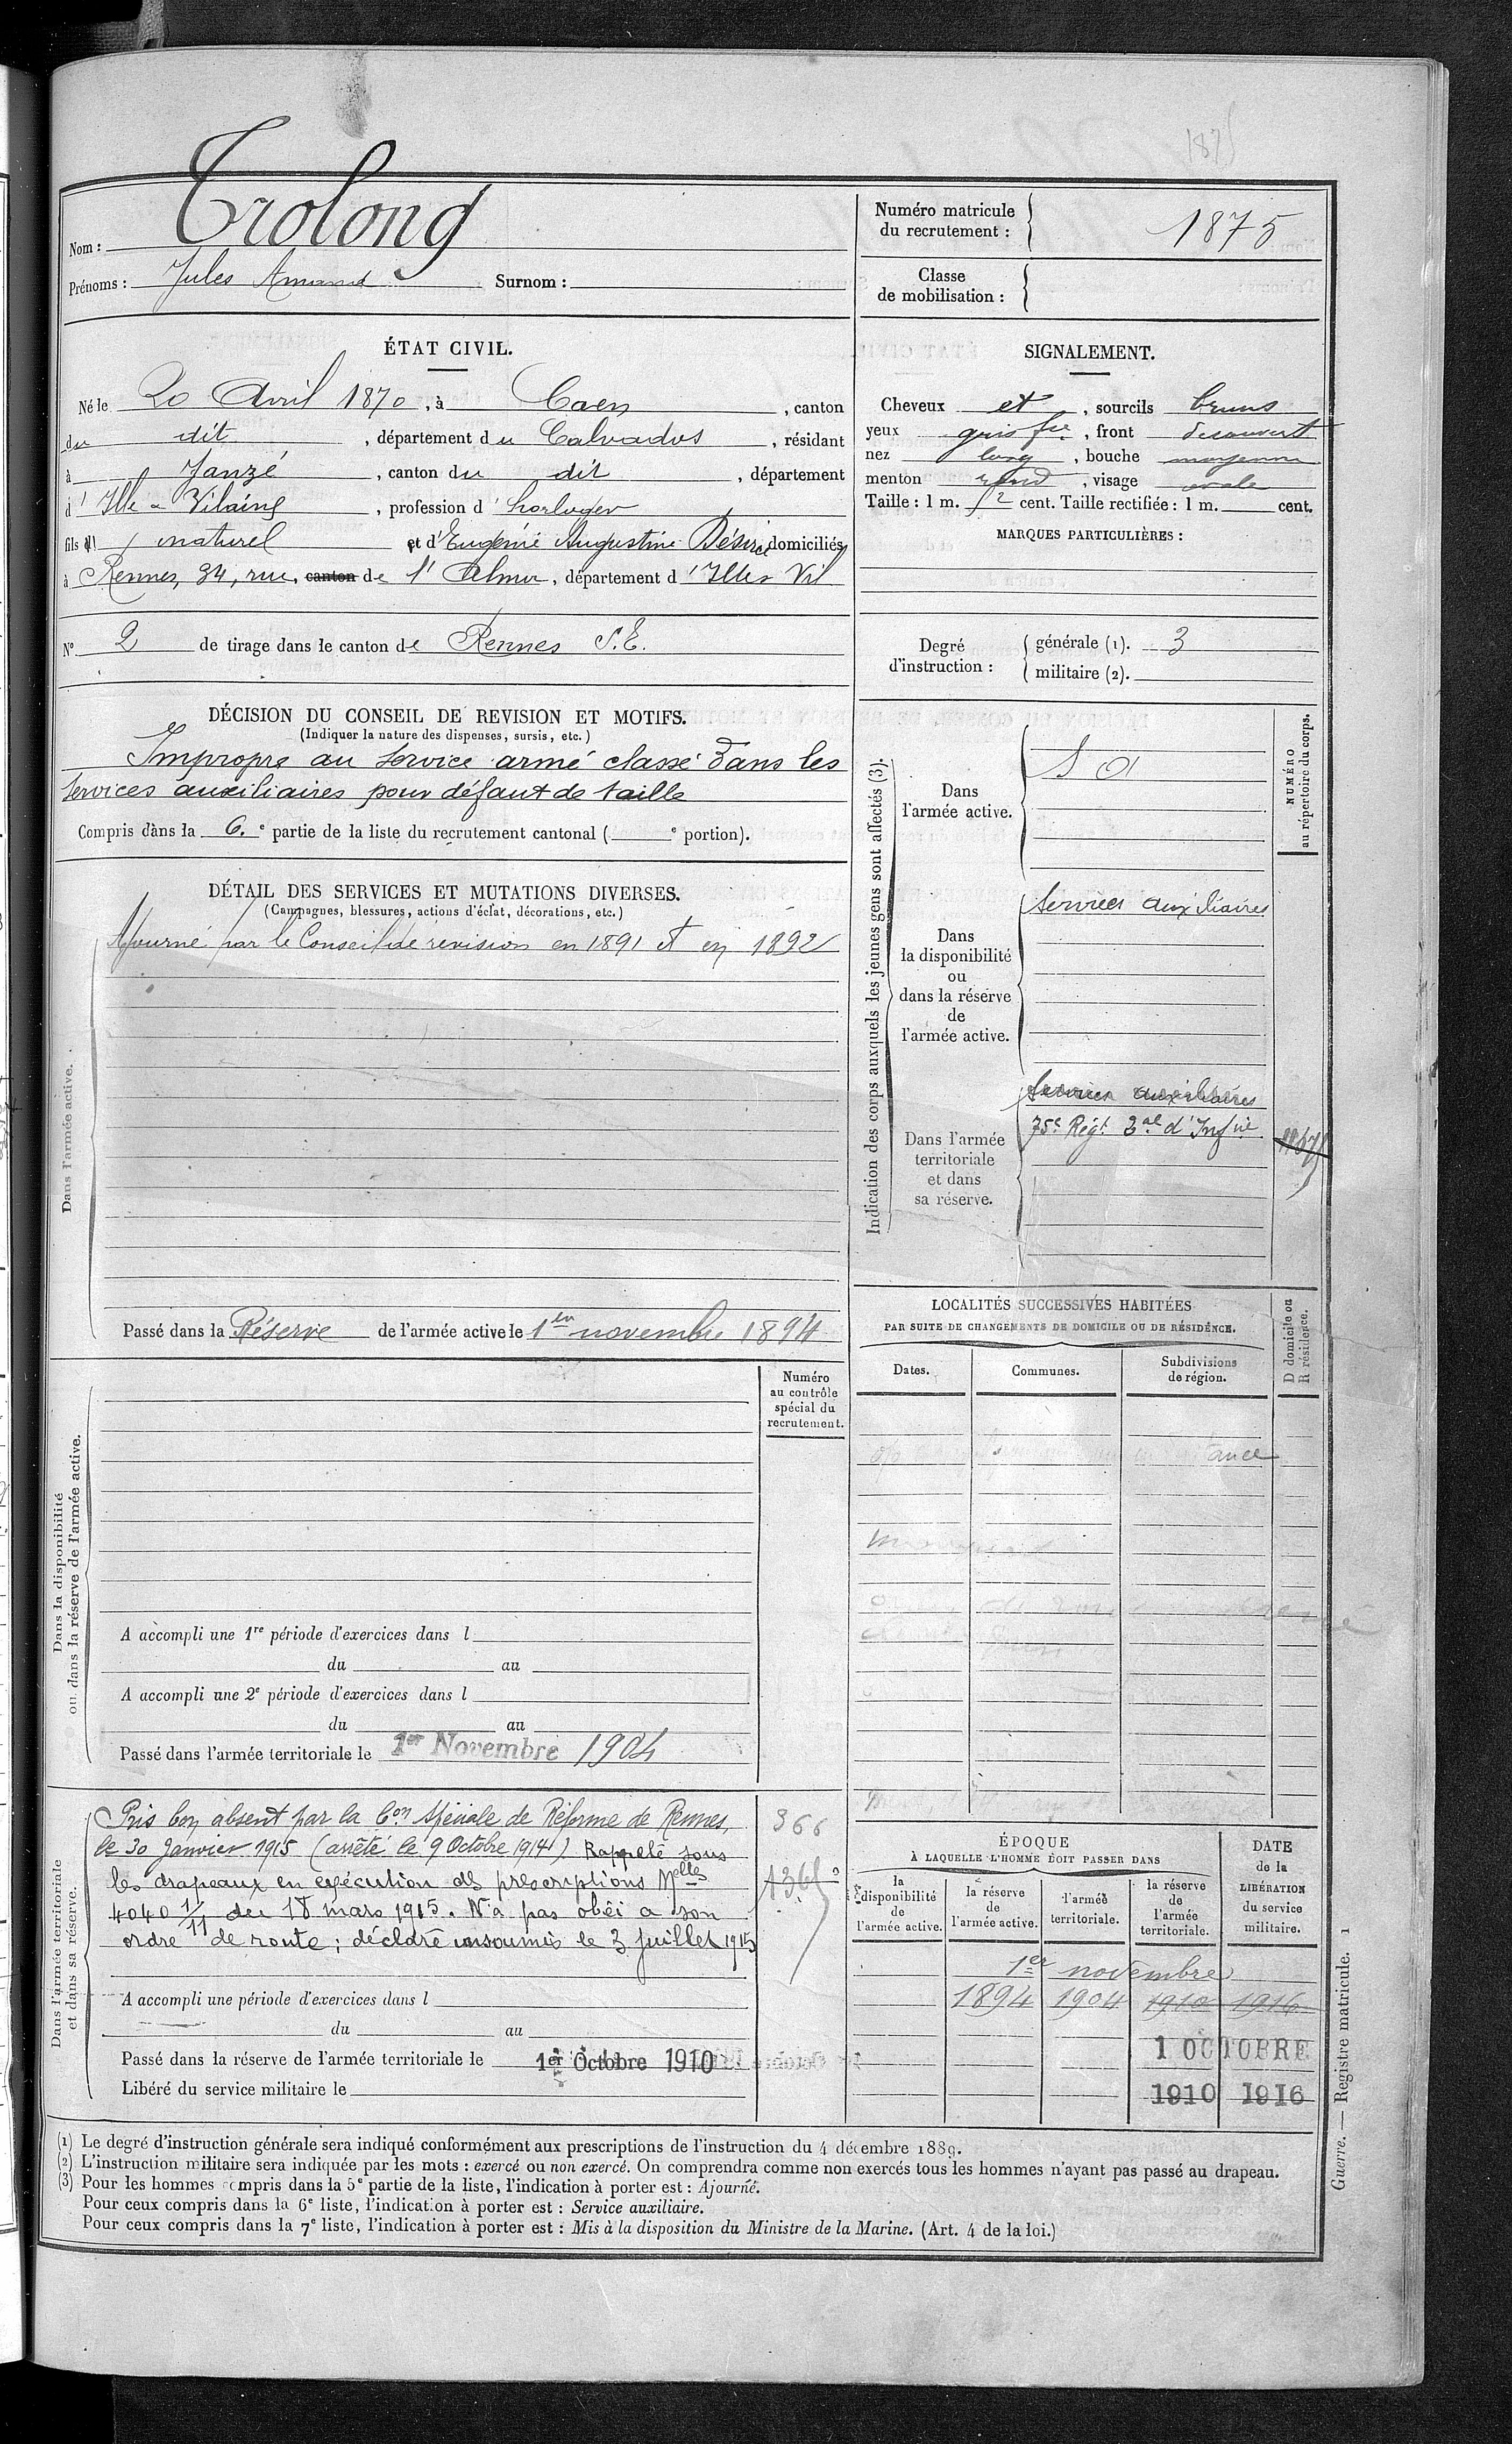 1875
Nom : Trolong
Prénoms : Jules Amand Surnom :
Numéro matricule
du recrutement : 1875
Classe
de mobilisation :
ÉTAT CIVIL.
Né le 20 Avril 1870, à Caen, canton
du dit, département du Calvados, résidant
à Janzé, canton du dit, département
d'Ille & Vilaine, profession d'horloger
fils naturel et d'Eugénie Augustine Désirée domiciliés
à Rennes, 34, rue, canton de l'Alma, département d'Ille & Vil
N° 2 de tirage dans le canton de Rennes S.E.
SIGNALEMENT.
Cheveux et, sourcils bruns
yeux gris fcé, front découvert
nez long, bouche moyenne
menton rond, visage ovale
Taille : 1 m. 52 cent. Taille rectifiée : 1 m. cent.
MARQUES PARTICULIÈRES :
Degré
d'instruction :
générale (1). 3
militaire (2).
DÉCISION DU CONSEIL DE REVISION ET MOTIFS.
(Indiquer la nature des dispenses, sursis, etc.)
Impropre au service armé classé dans les
services auxiliaires pour défaut de taille
Compris dans la 6.e partie de la liste du recrutement cantonal ( e portion).
DÉTAIL DES SERVICES ET MUTATIONS DIVERSES.
(Campagnes, blessures, actions d'éclat, décorations, etc.)
Dans l'armée active.
Ajourné par le Conseil de revision en 1891 et en 1892
Passé dans la Réserve de l'armée active le 1er novembre 1894
Indication des corps auxquels les jeunes gens sont affectés (3).
NUMÉRO
au répertoire du corps.
Dans
l'armée active.
S A
Dans
la disponibilité
ou
dans la réserve
de
l'armée active.
Services auxiliaires
Dans l'armée
territoriale
et dans
sa réserve.
Services auxiliaires
75e Régt Tal d'Infie
LOCALITÉS SUCCESSIVES HABITÉES
PAR SUITE DE CHANGEMENTS DE DOMICILE OU DE RÉSIDENCE.
Dates.
Communes.
Subdivisions
de région.
D domicile ou
R résidence.
Dans la disponibilité
ou dans la réserve de l'armée active.
Numéro
au contrôle
spécial du
recrutement.
A accompli une 1re période d'exercices dans l
du au
A accompli une 2e période d'exercices dans l
du au
Passé dans l'armée territoriale le 1er Novembre 1904
Dans l'armée territoriale
et dans sa réserve.
Pris bon absent par la Con Spéciale de Réforme de Rennes,
le 30 Janvier 1915 (arrêté le 9 Octobre 1914) Rappelé sous
les drapeaux en exécution des prescriptions Mlles
4040 1/11 du 18 mars 1915. N'a pas obéi a son
ordre de route ; déclaré insoumis le 3 juillet 1915
366
A accompli une période d'exercices dans l
du au
Passé dans la réserve de l'armée territoriale le 1er Octobre 1910
Libéré du service militaire le
ÉPOQUE
À LAQUELLE L'HOMME DOIT PASSER DANS
la
disponibilité
de
l'armée active.
la réserve
de
l'armée active.
l'armée
territoriale.
la réserve
de
l'armée
territoriale.
DATE
de la
LIBÉRATION
du service
militaire.
1er novembre
1894 1904 1910 1916
1 OCTOBRE
1910 1916
(1) Le degré d'instruction générale sera indiqué conformément aux prescriptions de l'instruction du 4 décembre 1889.
(2) L'instruction militaire sera indiquée par les mots : exercé ou non exercé. On comprendra comme non exercés tous les hommes n'ayant pas passé au drapeau.
(3) Pour les hommes compris dans la 5e partie de la liste, l'indication à porter est : Ajourné.
Pour ceux compris dans la 6e liste, l'indication à porter est : Service auxiliaire.
Pour ceux compris dans la 7e liste, l'indication à porter est : Mis à la disposition du Ministre de la Marine. (Art. 4 de la loi.)
Guerre. — Registre matricule. 1